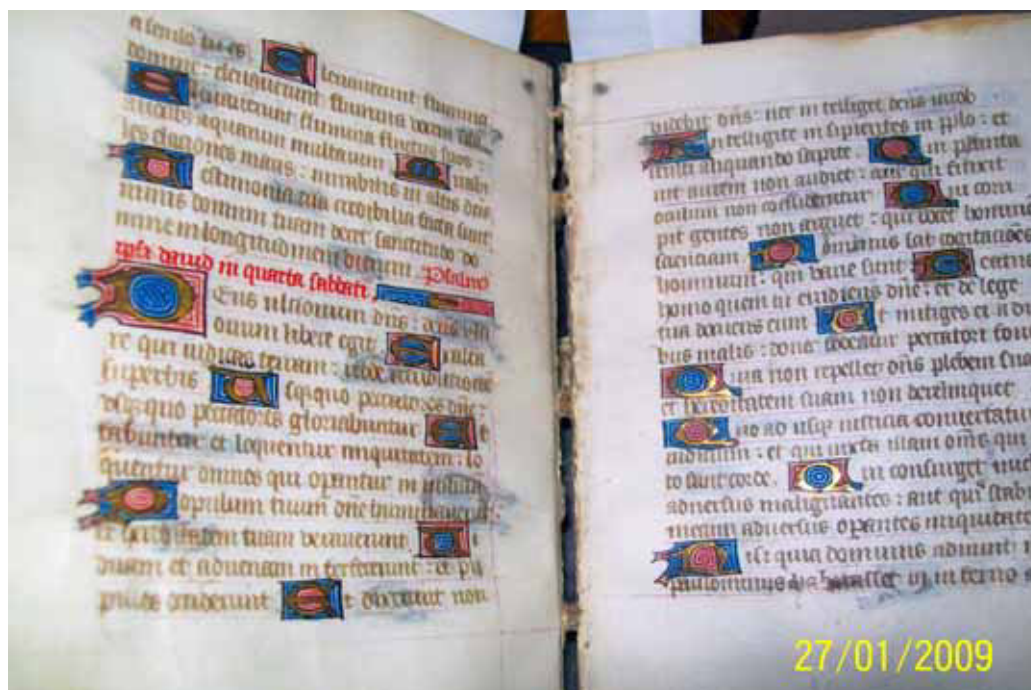 a seculo tu es. Eleuauerunt flumina
domine: eleuauerunt flumina vocem suam
Eleuauerunt flumina fluctus suos:
a uocibus aquarum multarum Mirabi
les elaciones maris: mirabilis in altis dns
Testimonia tua credibilia facta sunt
nimis domum tuam decet sanctitudo do
mine in longitudinem dierum. Psalmus
ipsi dauid in quarta sabbati
Deus ulcionum dns: deus ulci
onum libere egit Exalta
re qui iudicas terram: redde
superbis Usquequo peccatores dne:
usquequo peccatores gloriabuntur E
tabuntur et loquentur iniquitatem: lo
quentur omnes qui
Populum tuum dne humiliauerunt:
et hereditatem tuam vexauerunt Ui
duam et aduenam interfecerunt: et pu
pillos occiderunt Et dixerunt non
uidebit dns: nec intelliget deus iacob
Intelligite insipientes in pplo: et
stulti aliquando sapite. Qui plantauit
aurem non audiet: aut qui finxit
oculum non considerat Qui corri
pit gentes non arguet: qui docet hominem
scienciam Dominus scit cogitaciones
hominum: qui vane sunt Beatus
homo quem tu erudieris dne: et de lege
tua docueris eum Ut mitiges ei a die
bus malis: donec
Quia non repellet dns plebem suam
et hereditatem suam non derelinquet
Quo ad usq iusticia conuertatur
iudicium: et qui iuxta illam oms qui
to sunt corde. Quis consurget michi
aduersus malignantes: aut quis stabit
mecum aduersus operantes iniquitatem
Nisi quia dominus adiuuit
paulominus habitasset in inferno
27/01/2009